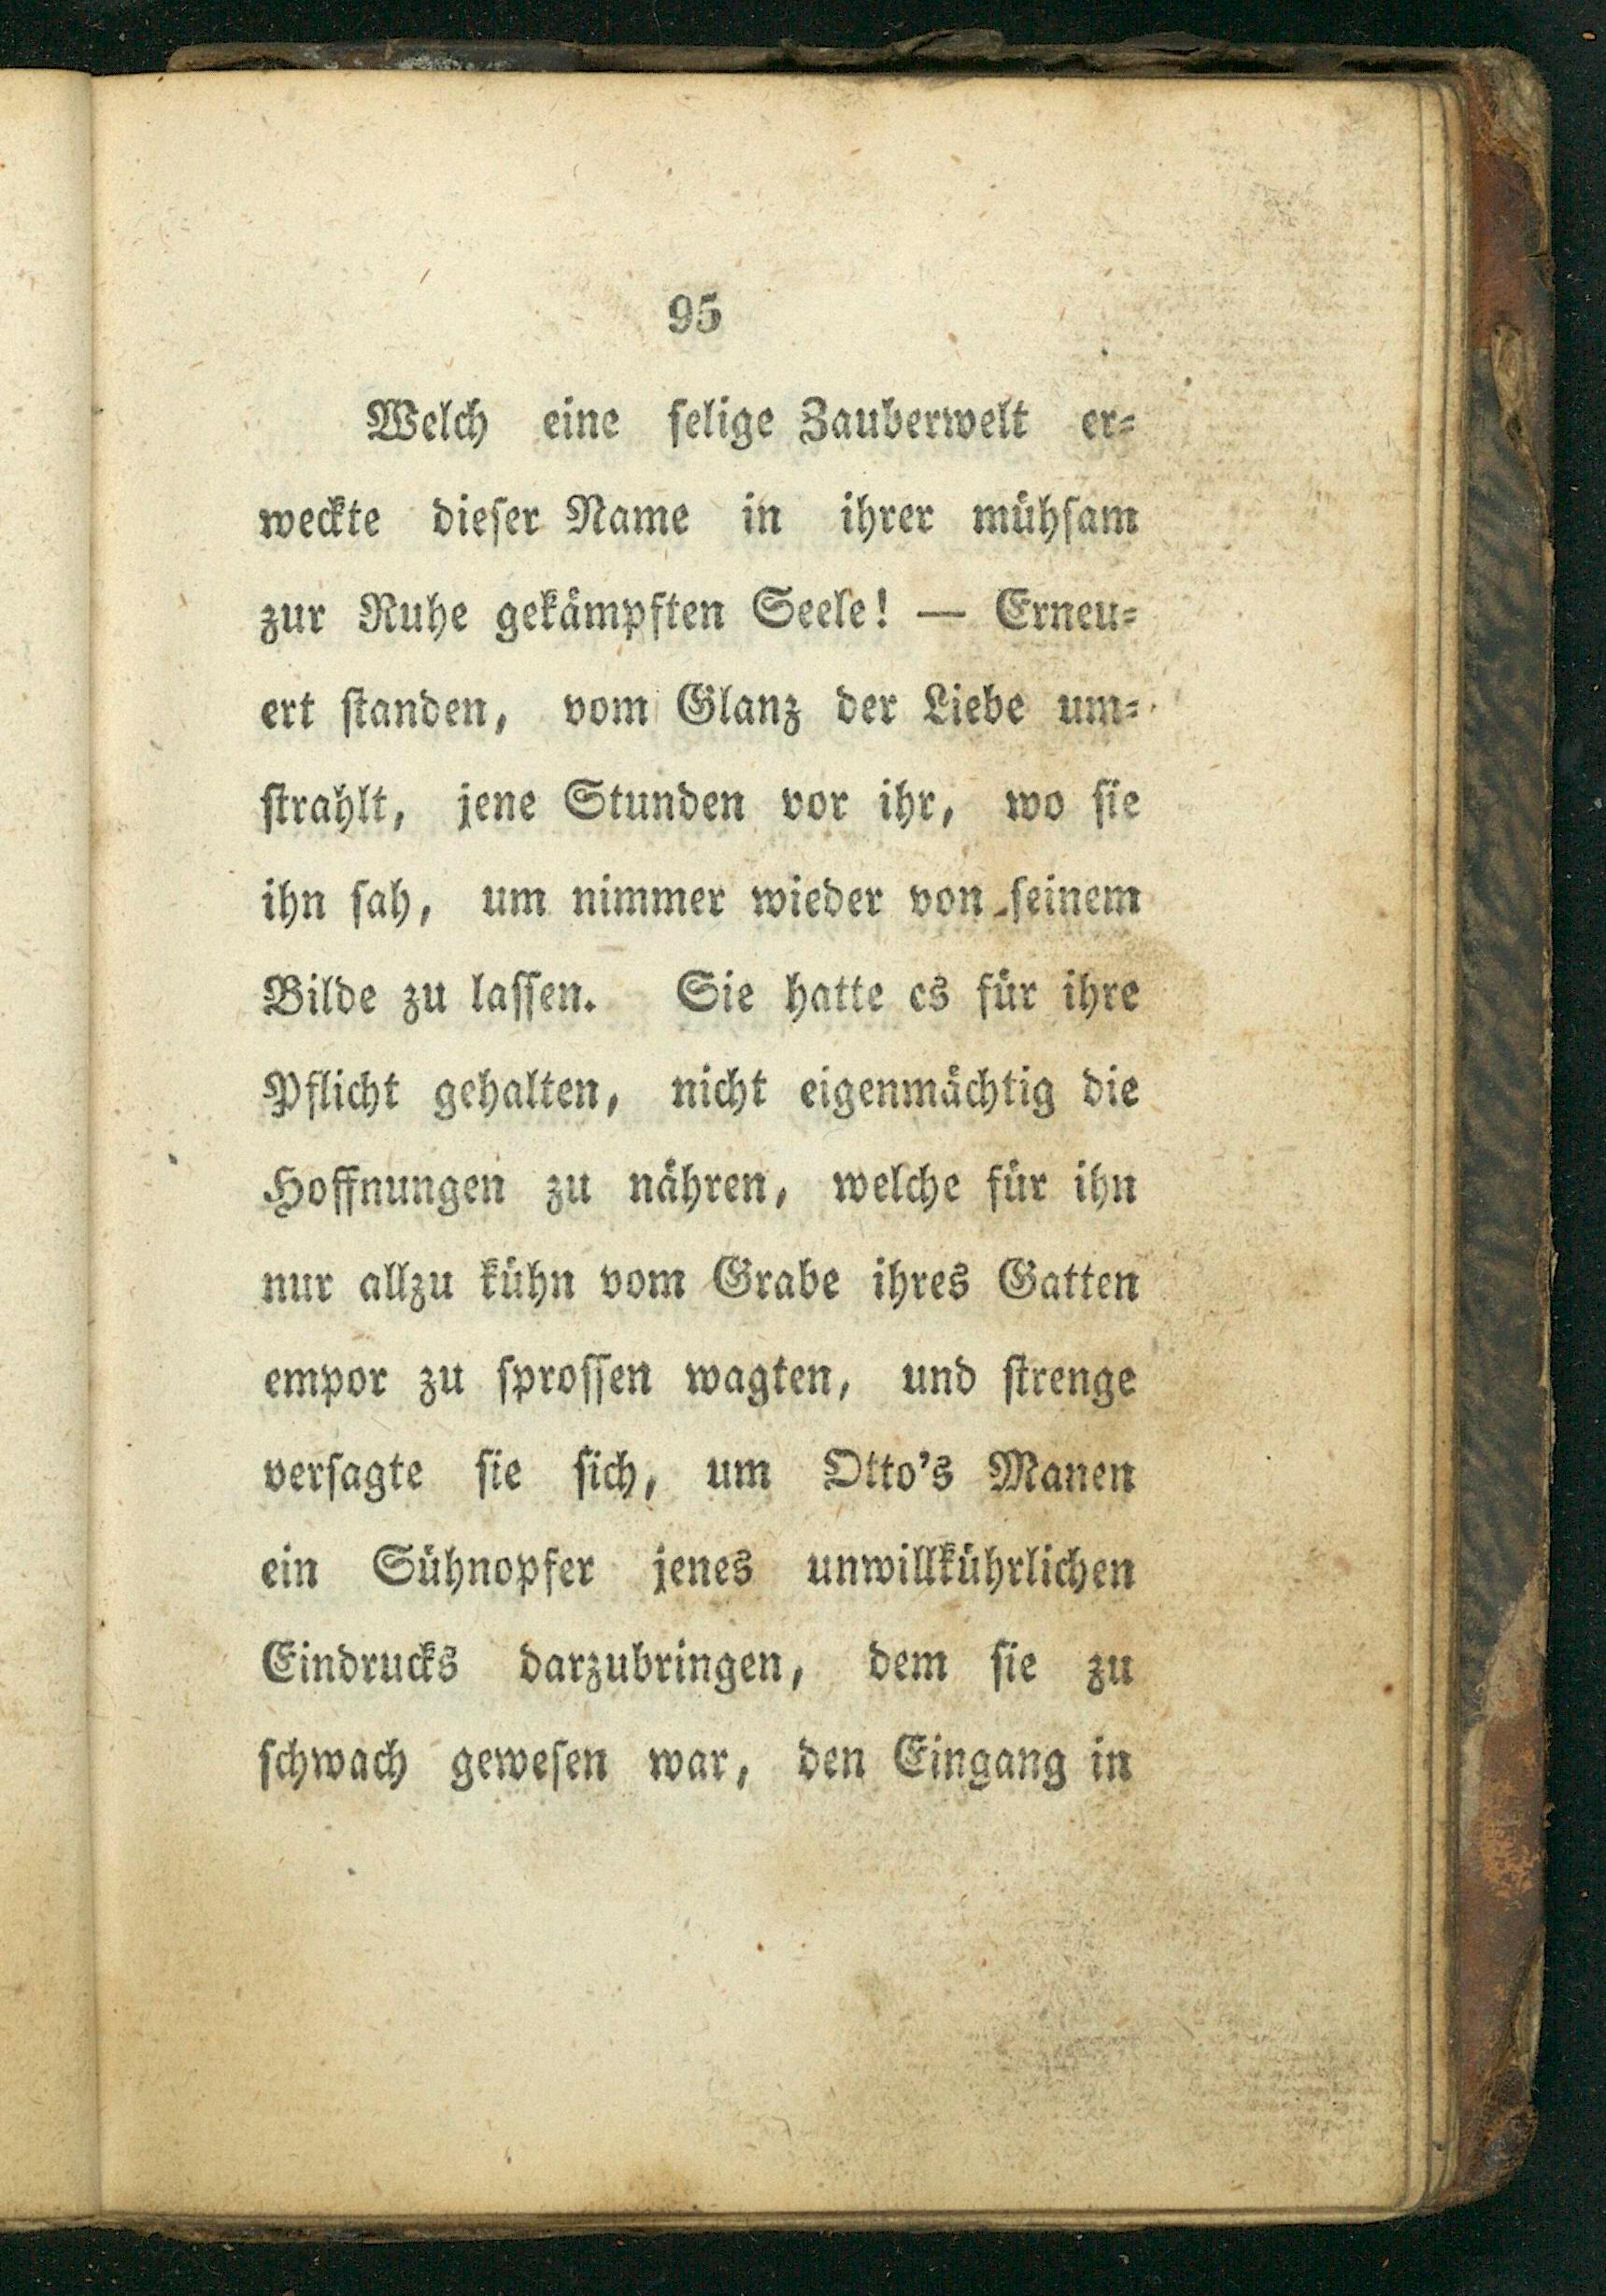 95
Welch eine selige Zauberwelt er=
weckte dieser Name in ihrer mühsam
zur Ruhe gekämpften Seele! — Erneu=
ert standen, vom Glanz der Liebe um=
strahlt, jene Stunden vor ihr, wo sie
ihn sah, um nimmer wieder von seinem
Bilde zu lassen. Sie hatte es für ihre
Pflicht gehalten, nicht eigenmächtig die
Hoffnungen zu nähren, welche für ihn
nur allzu kühn vom Grabe ihres Gatten
empor zu sprossen wagten, und strenge
versagte sie sich, um Otto's Manen
ein Sühnopfer jenes unwillkührlichen
Eindrucks darzubringen, dem sie zu
schwach gewesen war, den Eingang in